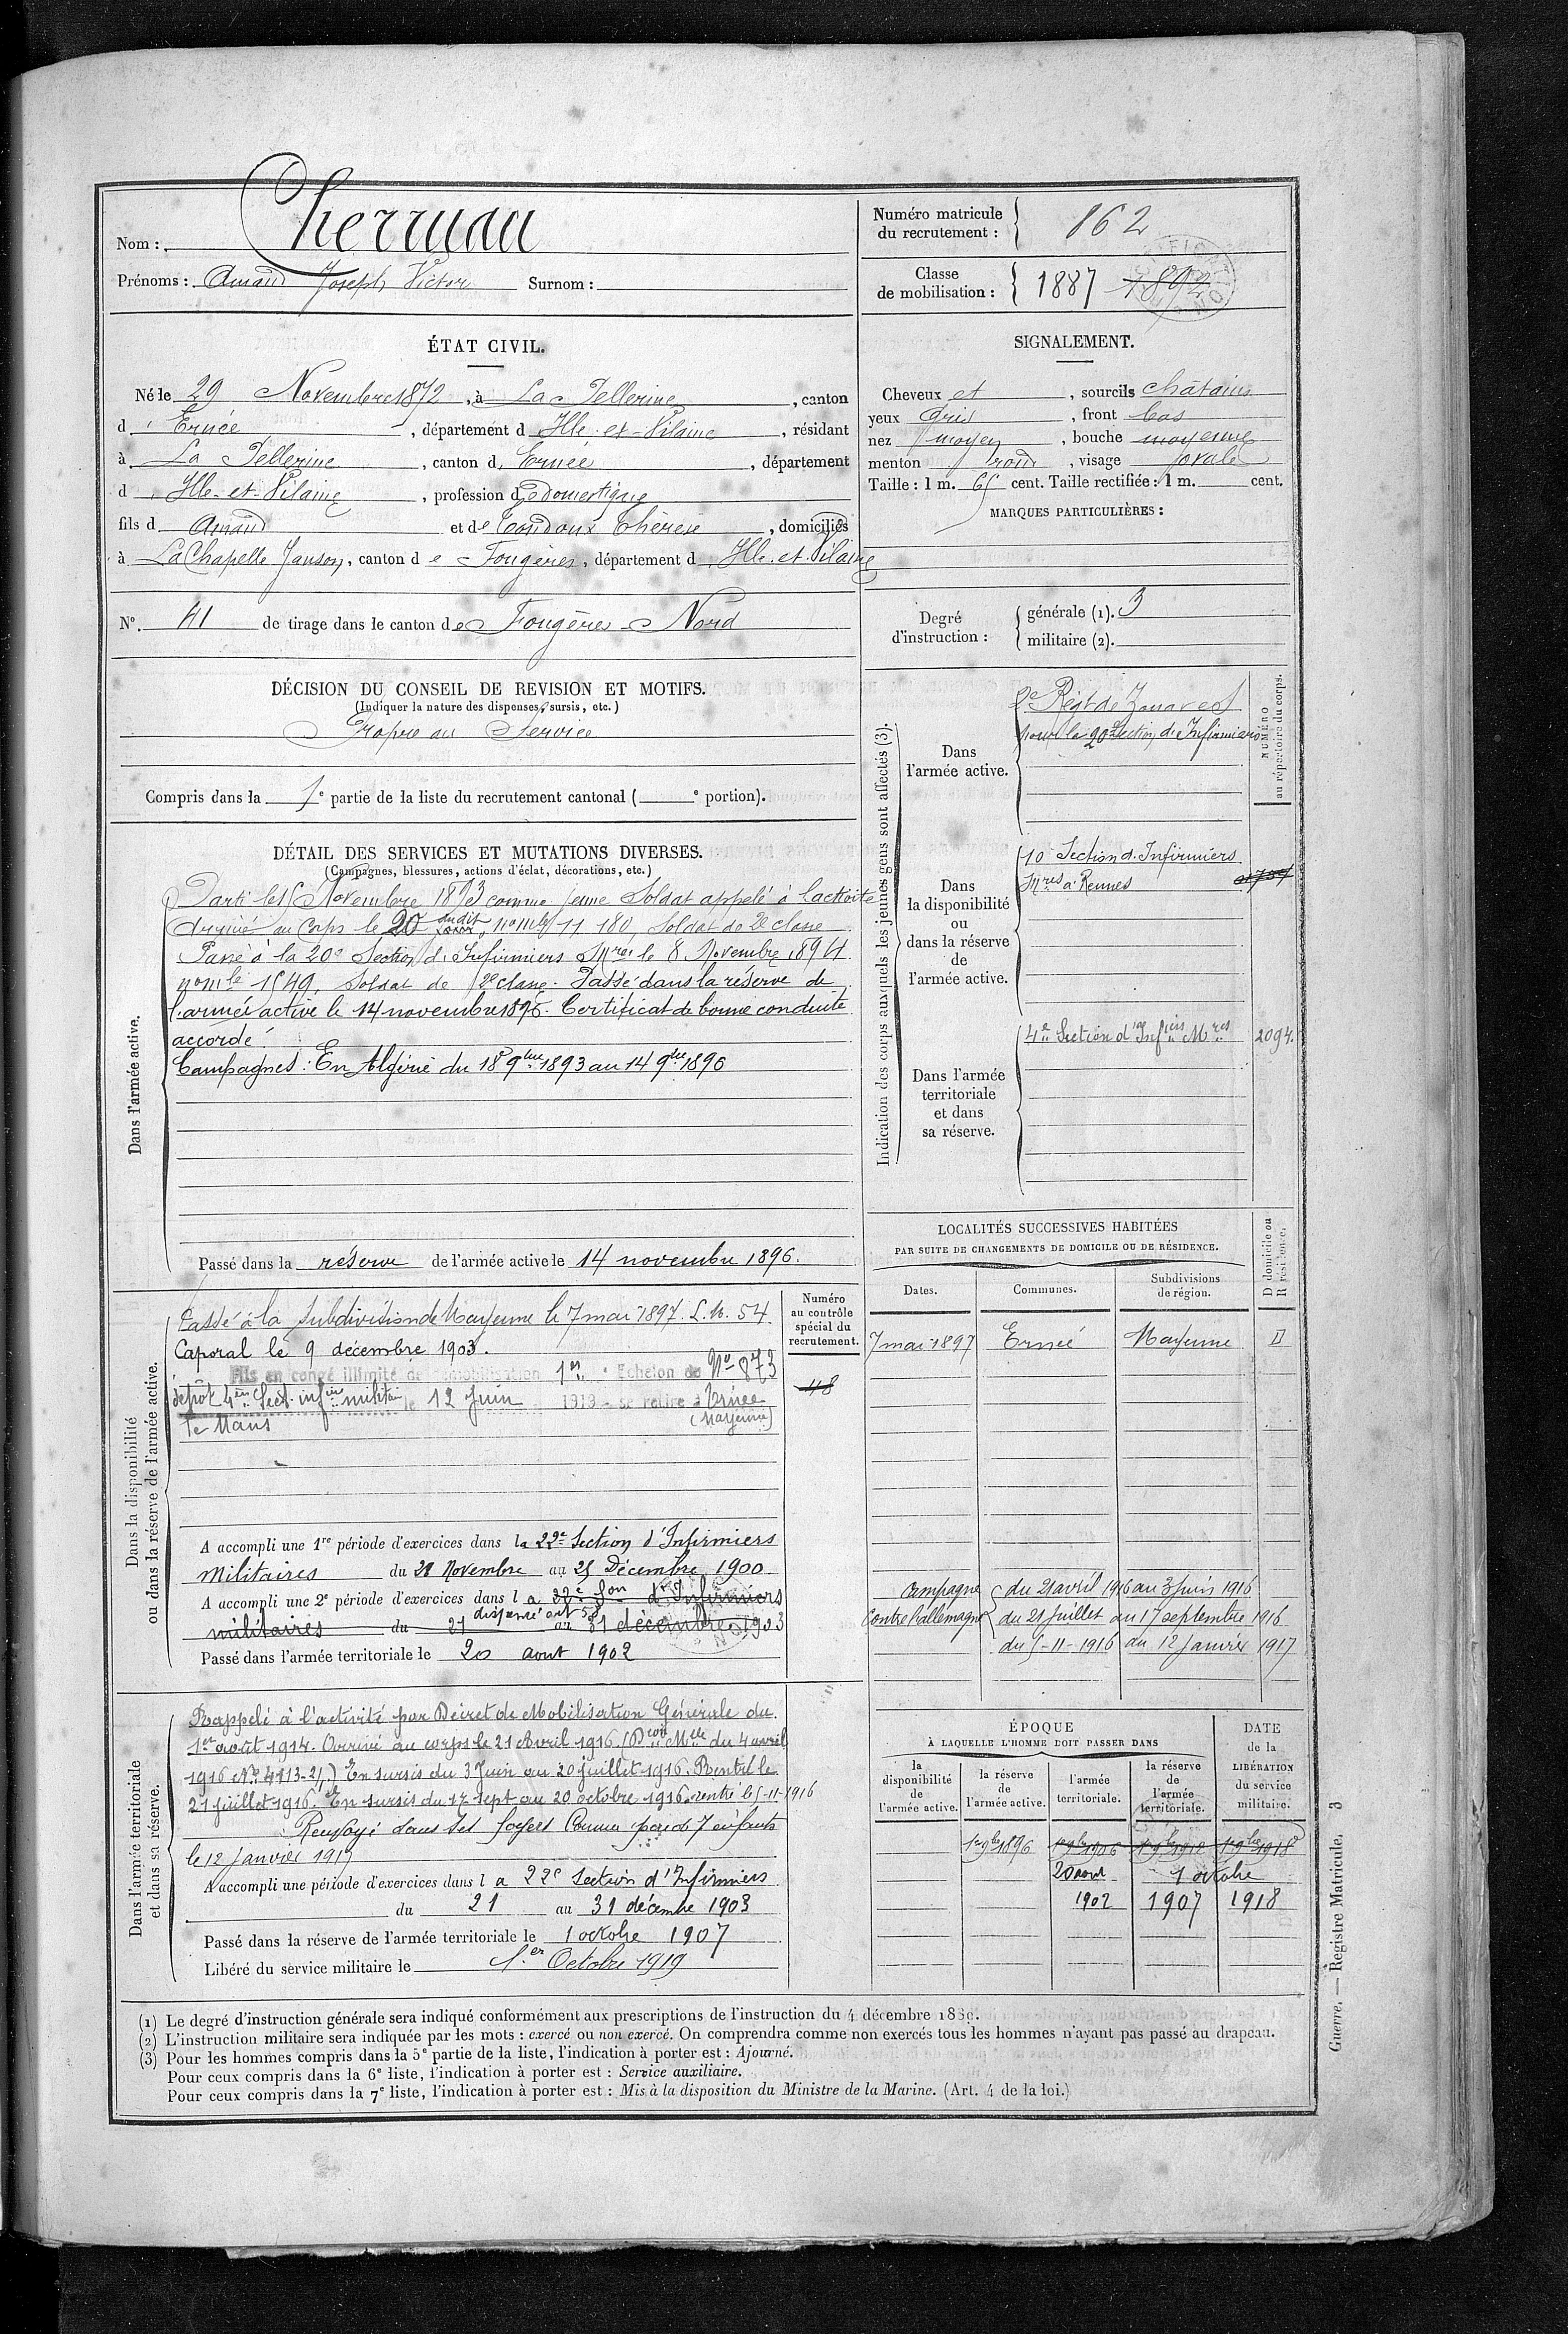 Nom : Cherruau
Prénoms : Amand Joseph Victor Surnom :
Numéro matricule du recrutement : 862
Classe de mobilisation : 1887 1892
ÉTAT CIVIL.
Né le 29 Novembre 1872, à La Pellerine, canton
d' Ernée, département d' Ille-et-Vilaine, résidant
à La Pellerine, canton d' Ernée, département
d' Ille-et-Vilaine, profession de domestique
fils d' Amand et de Thérèse, domiciliés
à La Chapelle Janson, canton de Fougères, département d' Ille-et-Vilaine
N° 41 de tirage dans le canton de Fougères Nord
SIGNALEMENT.
Cheveux et, sourcils châtains
yeux gris, front bas
nez moyen, bouche moyenne
menton rond, visage ovale
Taille : 1 m. 65 cent. Taille rectifiée : 1 m. cent.
MARQUES PARTICULIÈRES :
Degré d'instruction :
générale (1). 3
militaire (2).
DÉCISION DU CONSEIL DE REVISION ET MOTIFS.
(Indiquer la nature des dispenses, sursis, etc.)
Propre au Service
Compris dans la 1e partie de la liste du recrutement cantonal ( e portion).
Indication des corps auxquels les jeunes gens sont affectés (3).
NUMÉRO au répertoire du corps.
Dans l'armée active.
2e Régt de Zouaves
pour la 20e Section d'Infirmiers
Dans la disponibilité ou dans la réserve de l'armée active.
10e Section d'Infirmiers
Mres à Rennes
Dans l'armée territoriale et dans sa réserve.
4e Section d'Infiers Mres 2094.
DÉTAIL DES SERVICES ET MUTATIONS DIVERSES.
(Campagnes, blessures, actions d'éclat, décorations, etc.)
Dans l'armée active.
Parti le Novembre 1893 comme jeune Soldat appelé à l'activité
Arrivé au Corps le 20 dudit, n° mle 11 180, Soldat de 2e classe
Passé à la 20e Section d'Infirmiers Mres le 8 Novembre 1894
n° mle 1549, Soldat de 2e classe. Passé dans la réserve de
l'armée active le 14 novembre 1896. Certificat de bonne conduite
accordé.
Campagnes : En Algérie du 18 9bre 1893 au 14 9bre 1896
Passé dans la réserve de l'armée active le 14 novembre 1896.
Dans la disponibilité ou dans la réserve de l'armée active.
Numéro au contrôle spécial du recrutement.
48
Passé à la subdivision de Mayenne le 7 mai 1897. L.M. 54.
Caporal le 9 décembre 1903.
Mis en congé illimité de démobilisation 1er Echelon du N° 873
dépôt 4e Sect. infiers militaires le 12 Juin 1919 - se retire à Ernée
Le Mans (Mayenne)
A accompli une 1re période d'exercices dans la 22e Section d'Infirmiers
Militaires du 28 Novembre au 25 Décembre 1900.
A accompli une 2e période d'exercices dans la 22e Son d'Infirmiers
dispensé art 58
militaires du 21 au 31 décembre 1903
Passé dans l'armée territoriale le 20 août 1902
LOCALITÉS SUCCESSIVES HABITÉES
PAR SUITE DE CHANGEMENTS DE DOMICILE OU DE RÉSIDENCE.
Dates. Communes. Subdivisions de région. D domicile ou R résidence.
7 mai 1897 Ernée Mayenne D
Campagne du 21 avril 1916 au 3 juin 1916
Contre l'allemagne du 21 juillet au 17 septembre 1916
du 5-11-1916 au 12 Janvier 1917
Dans l'armée territoriale et dans sa réserve.
Rappelé à l'activité par Décret de Mobilisation Générale du
1er août 1914. Arrivé au corps le 21 Avril 1916 (Don Mlle du 4 avril
1916 N° 4113-2/.) En sursis du 3 Juin au 20 juillet 1916. Rentré le
21 juillet 1916. En sursis du 17 sept au 20 octobre 1916. rentré le 5-11-1916
Renvoyé dans ses foyers Comme père de 7 enfants
le 12 Janvier 1917
A accompli une période d'exercices dans la 22e Section d'Infirmiers
du 21 au 31 décembre 1903
Passé dans la réserve de l'armée territoriale le 1 octobre 1907
Libéré du service militaire le 1er Octobre 1919
ÉPOQUE
À LAQUELLE L'HOMME DOIT PASSER DANS
la disponibilité de l'armée active.
la réserve de l'armée active.
l'armée territoriale.
la réserve de l'armée territoriale.
DATE de la LIBÉRATION du service militaire.
1er 9bre 1896 1er 9bre 1906 1er 9bre 1912 1er 9bre 1918
20 aout 1 octobre
1902 1907 1918
(1) Le degré d'instruction générale sera indiqué conformément aux prescriptions de l'instruction du 4 décembre 1889.
(2) L'instruction militaire sera indiquée par les mots : exercé ou non exercé. On comprendra comme non exercés tous les hommes n'ayant pas passé au drapeau.
(3) Pour les hommes compris dans la 5e partie de la liste, l'indication à porter est : Ajourné.
Pour ceux compris dans la 6e liste, l'indication à porter est : Service auxiliaire.
Pour ceux compris dans la 7e liste, l'indication à porter est : Mis à la disposition du Ministre de la Marine. (Art. 4 de la loi.)
Guerre. — Registre Matricule. 3